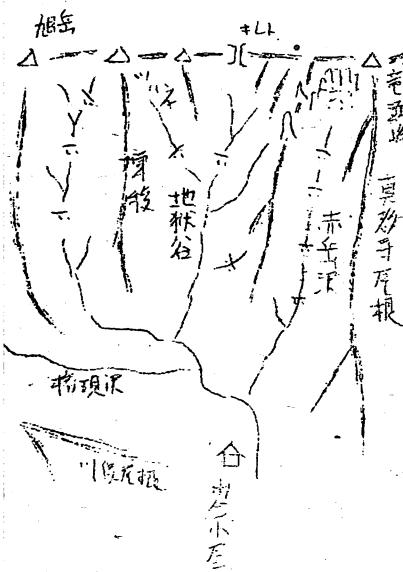 旭岳
キレト
ツルネ
竜頭峰
真教寺尾根
地獄谷
赤岳沢
権現沢
川俣尾根
出合小屋